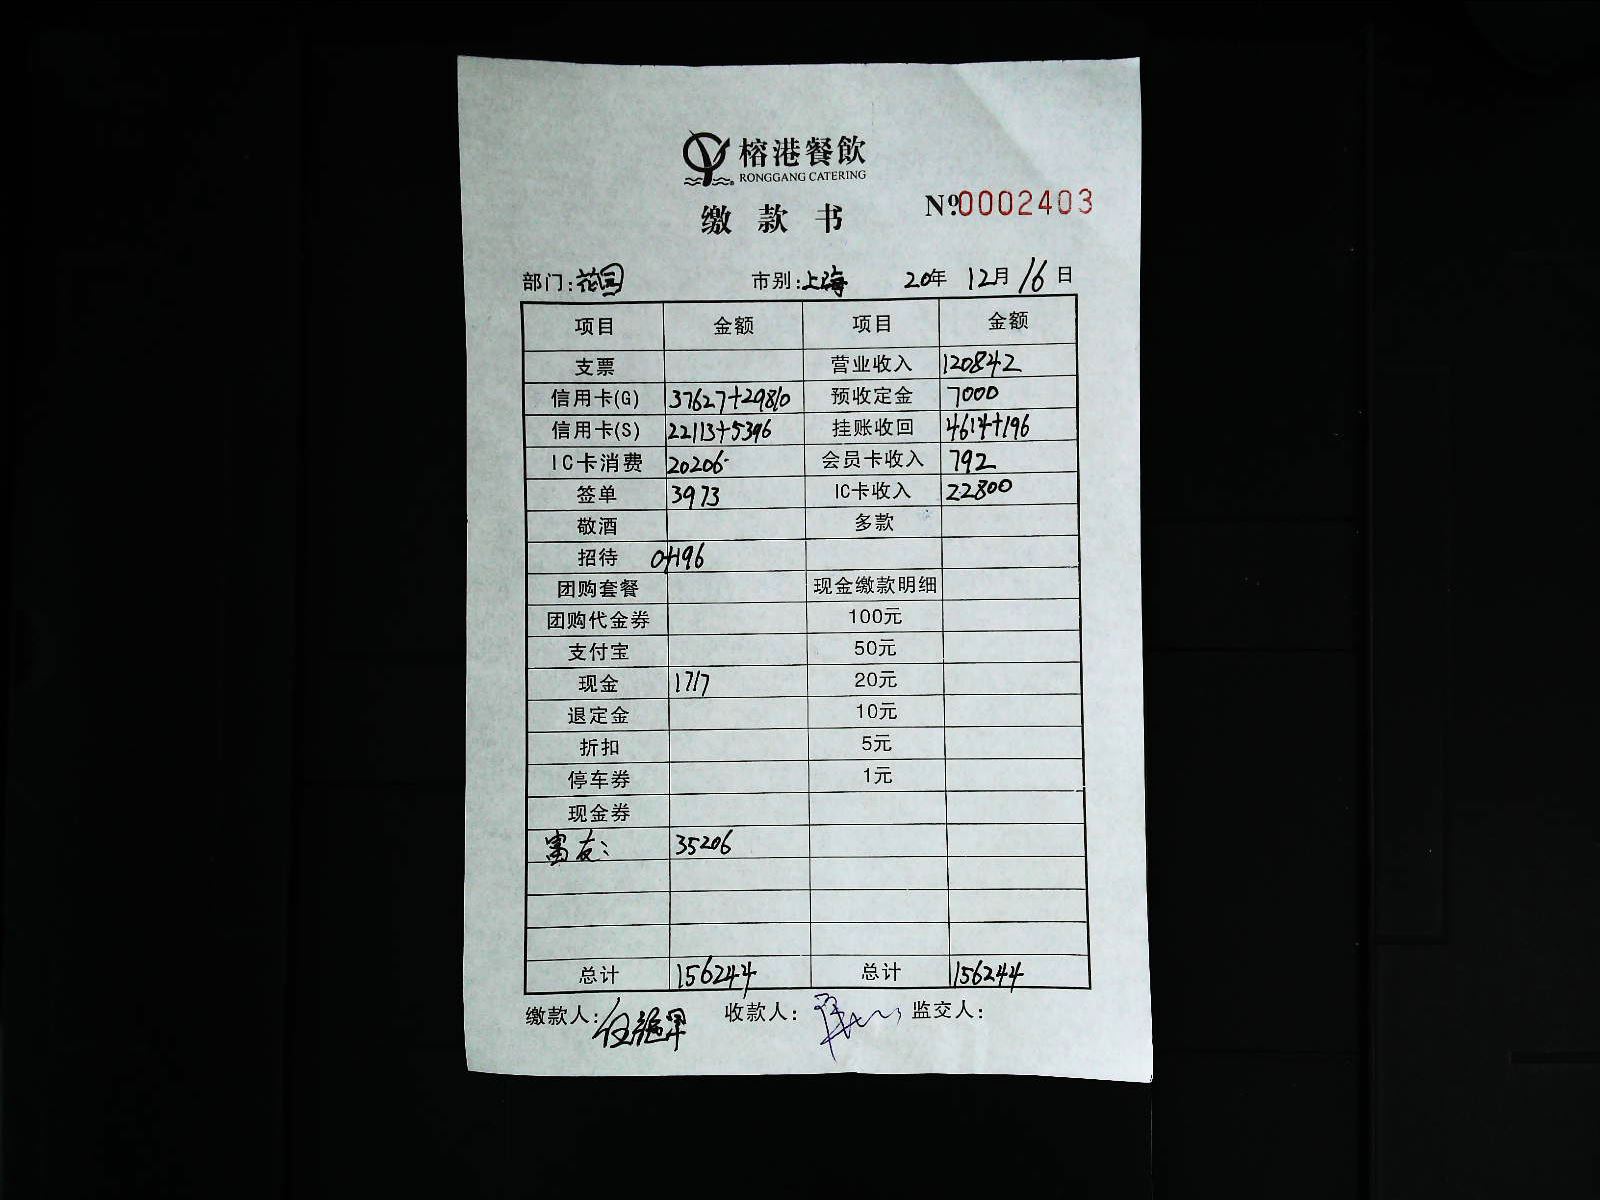 榕港餐飲
RONGGANG CATERING
缴款书
№0002403
部门:花园 市别:上海 20年 12月 16日
项目 金额 项目 金额
支票 营业收入 120842
信用卡(G) 37627+29810 预收定金 7000
信用卡(S) 22113+5396 挂账收回 4614+196
IC卡消费 20206 会员卡收入 792
签单 3973 IC卡收入 22800
敬酒 多款
招待 0+196
团购套餐 现金缴款明细
团购代金券 100元
支付宝 50元
现金 1717 20元
退定金 10元
折扣 5元
停车券 1元
现金券
富友: 35206
总计 156244 总计 156244
缴款人: 收款人: 监交人: